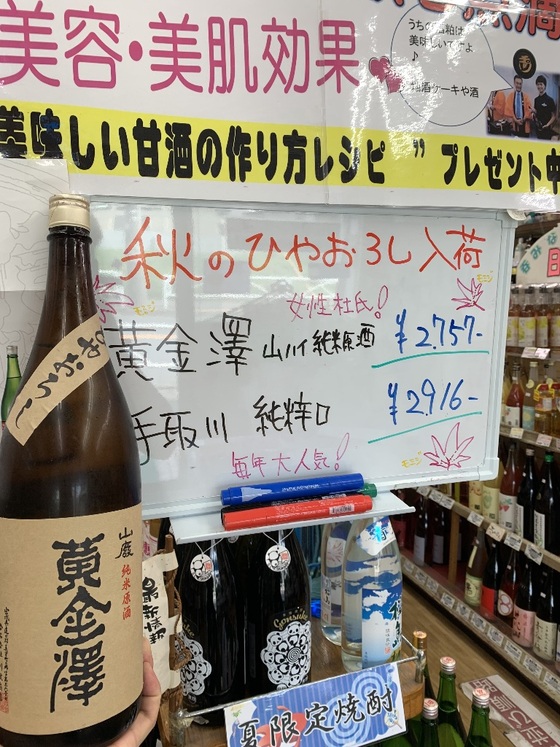 美容・美肌効果
うちの酒粕は
美味しいですよ
♪
美味しい甘酒の作り方レシピ" プレゼント中
秋のひやおろし入荷
女性杜氏!
黄金澤 山ハイ純米原酒 ¥2,757-
手取川 純粋口 ¥2916-
毎年大人気!
モミジ
モミジ
モミジ
ひやおろし
山廃 純米原酒
黄金澤
最新情報
夏限定焼酎